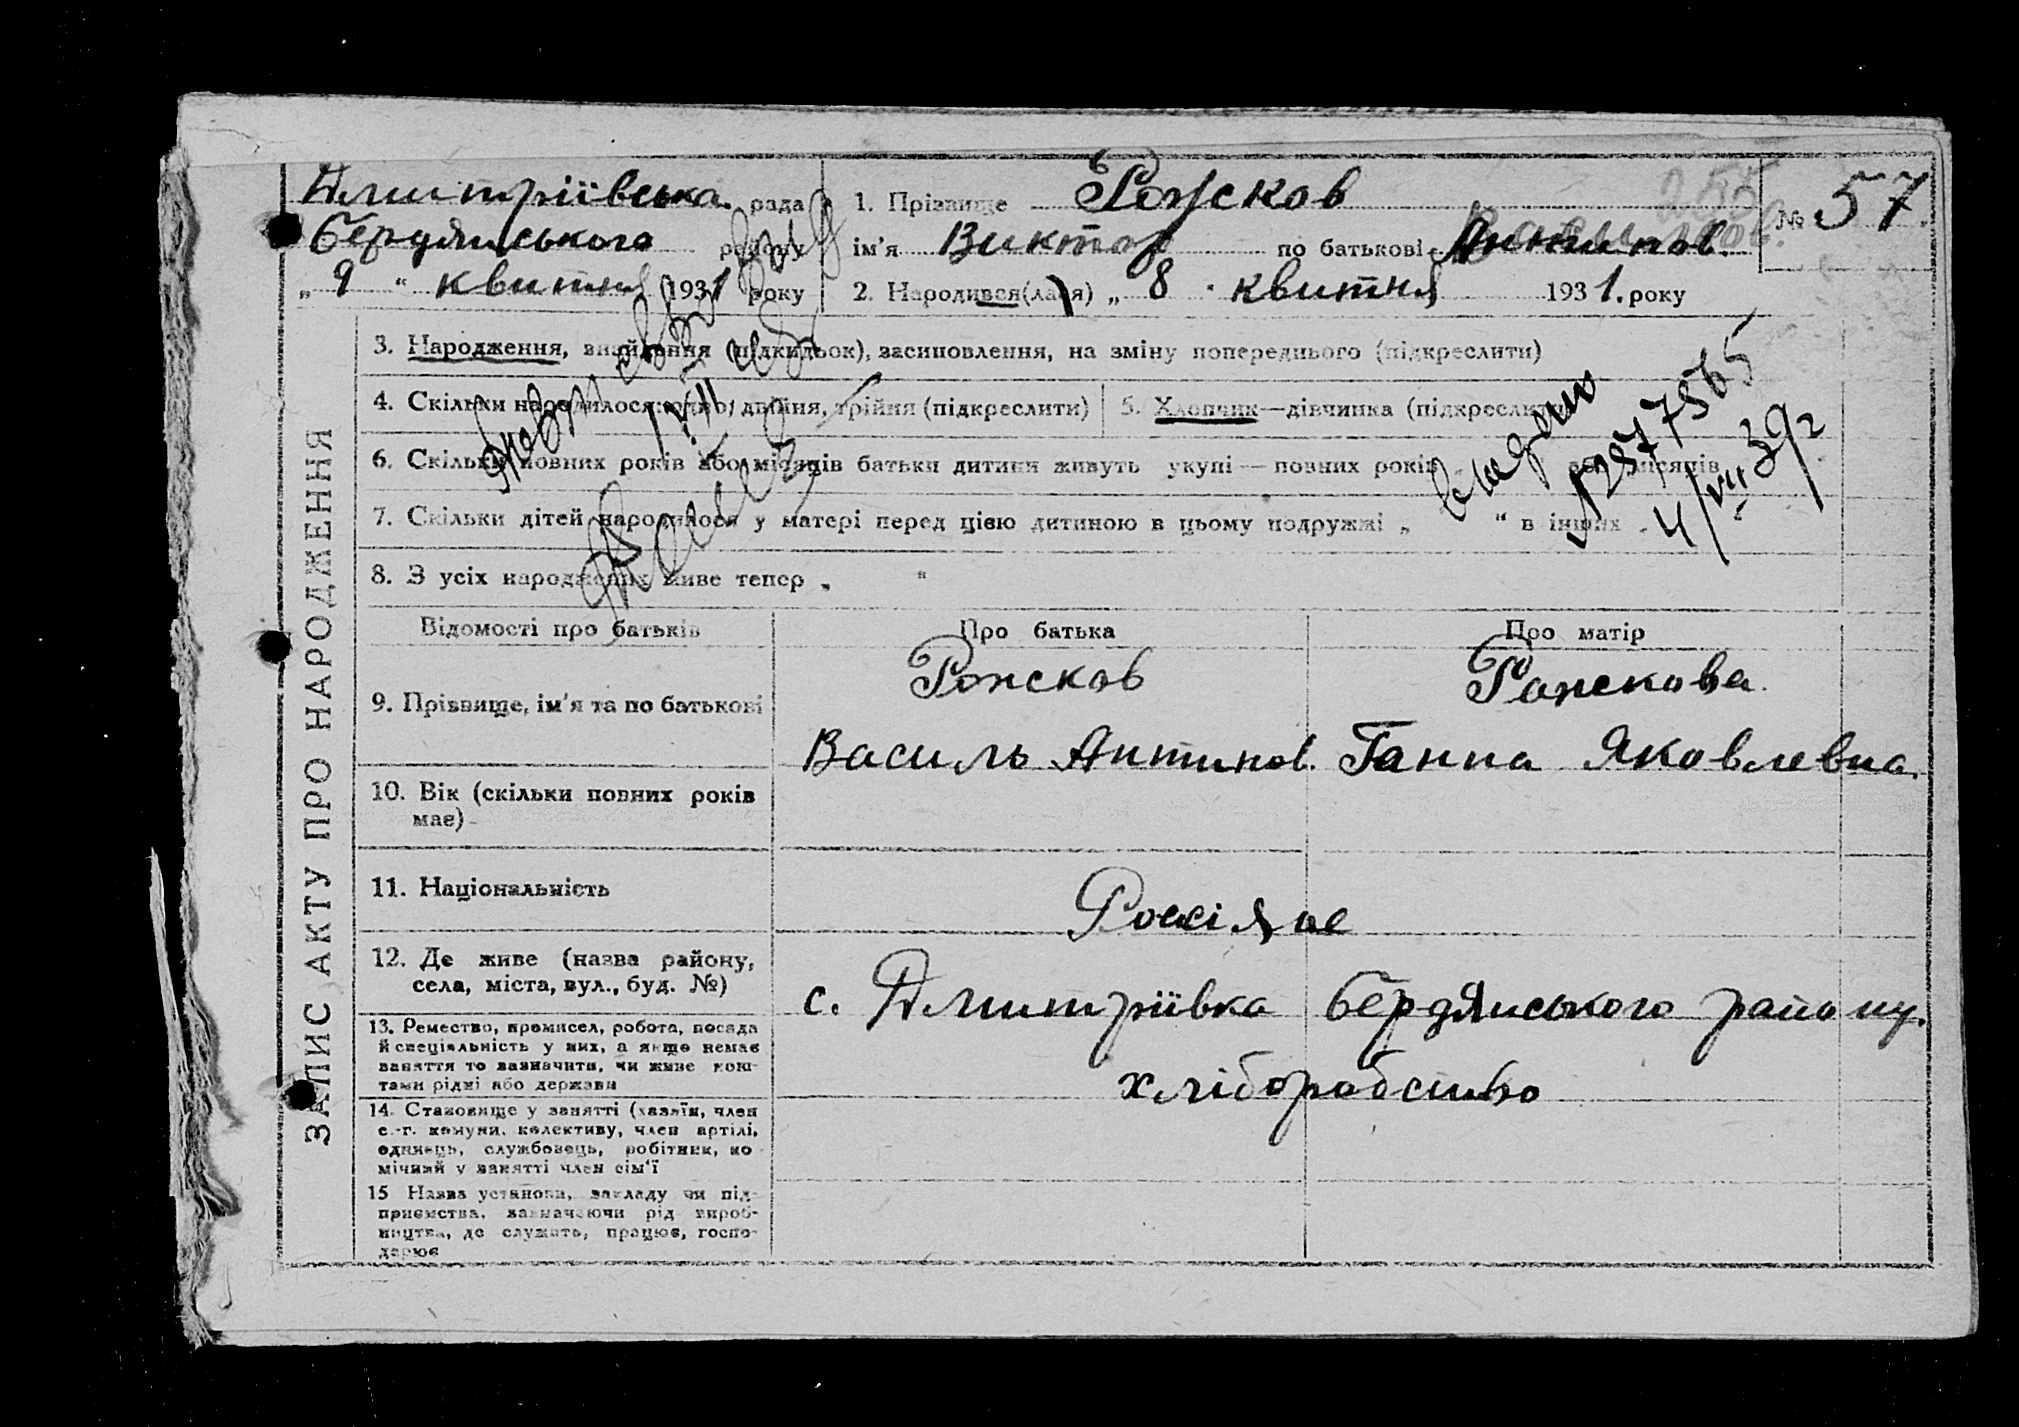 Дмитріївська рада
Бердянського району
„ 9 “ квитня 1931 року
1. Прізвище Рожсков
№ 57
ім'я Виктор по батькові Антипов.
2. Народився(лася) „ 8 квитня 1931. року
ЗАПИС АКТУ ПРО НАРОДЖЕННЯ
3. Народження, знайдення (підкидьок), засиновлення, на зміну попереднього (підкреслити)
4. Скільки народилося: одно, двійня, трійня (підкреслити)
5. Хлопчик—дівчинка (підкреслити)
6. Скільки повних років або місяців батьки дитини живуть укупі — повних років місяців
7. Скільки дітей народилося у матері перед цією дитиною в цьому подружжі „ “ в інших
8. З усіх народжених живе тепер „ “
видан
№2877565
4/VII 39
Відомості про батьків
Про батька
Про матір
9. Прізвище, ім'я та по батькові
Рожсков
Рожскова.
Василь Антипов.
Ганна Яковлевна.
10. Вік (скільки повних років
має)
11. Національність
Россіяне
12. Де живе (назва району,
села, міста, вул., буд. №)
с. Дмитріївка Бердянського району.
13. Ремество, промисел, робота, посада
й спеціяльність у них, а якщо немає
заняття то зазначити, чи живе кош-
тами рідні або держави
хліборобство
14. Становище у занятті (хазяїн, член
с.-г. комуни, колективу, член артілі,
одинець, службовець, робітник, по
мічний у занятті член сім'ї
15 Назва установи, закладу чи під-
приємства, зазначаючи рід вироб-
ництва, де служить, працює, госпо-
дарює